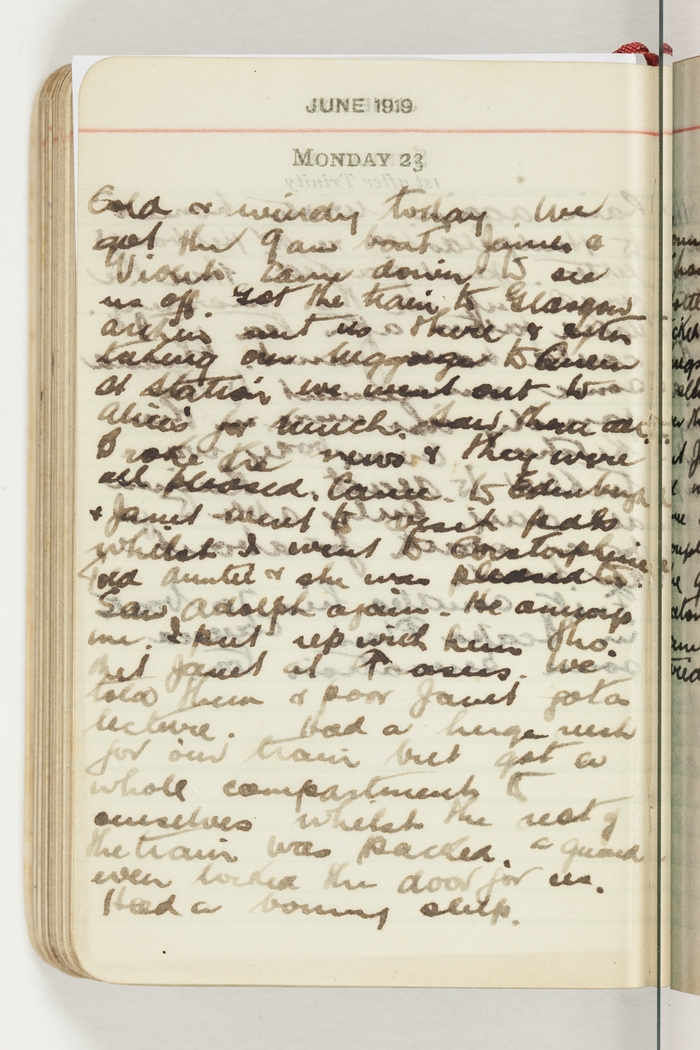 JUNE 1919
MONDAY 23
Cold & windy today We
got the 9 am boat. James &
came down to see
us off. Got the train to Glasgow
met us there & after
taking our luggage to Queen
St Station we went out to
Alice's for lunch. Saw them all.
Broke the news & they were
all pleased. Came to Edinburgh
& Janet went to visit pals
whilst I went to Corstorphine
Told Auntie & she was pleased to.
Saw Adolph again. He annoys
me. I put up with him tho.
Met Janet at We
told them & poor Janet got a
lecture. Had a huge rush
for our train but got a
whole compartment to
ourselves whilst the rest of
the train was packed. a guard
even locked the door for us.
Had a bonny sleep.